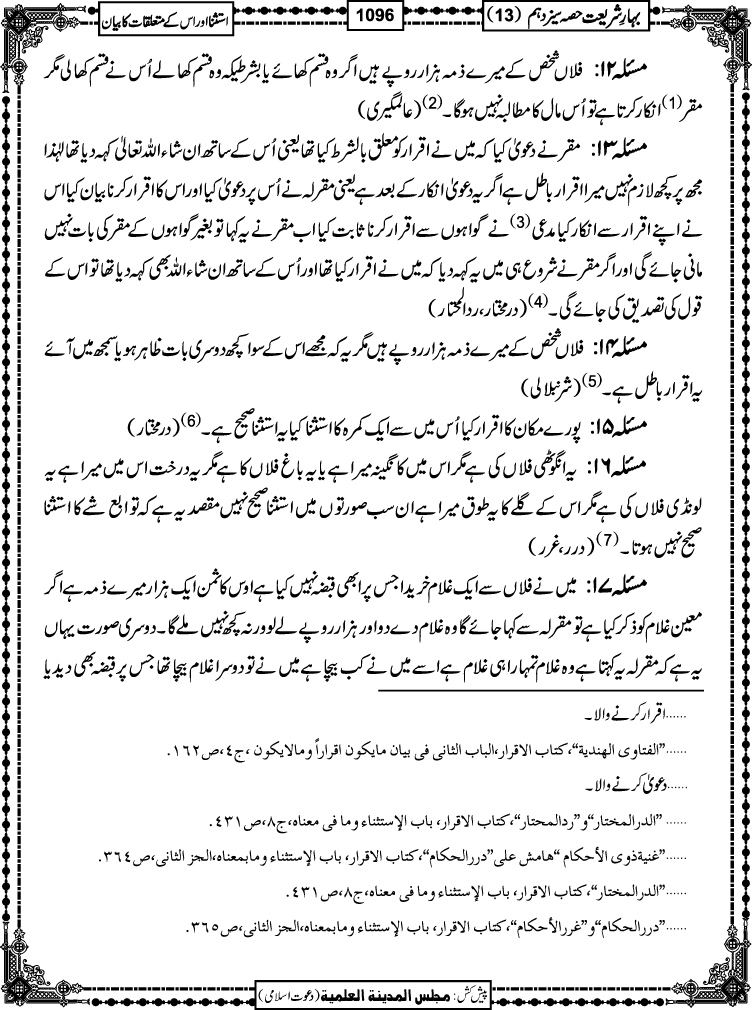 بہارِ شریعت حصہ سیزدہم (13)
1096
استثنا اور اس کے متعلقات کا بیان
مسئلہ ۱۲: فلاں شخص کے میرے ذمہ ہزار روپے ہیں اگر وہ قسم کھائے یا بشرطیکہ وہ قسم کھالے اُس نے قسم کھالی مگر
مقر(1) انکار کرتا ہے تو اُس مال کا مطالبہ نہیں ہوگا۔(2) (عالمگیری)
مسئلہ ۱۳: مقر نے دعویٰ کیا کہ میں نے اقرار کو معلق بالشرط کیا تھا یعنی اُس کے ساتھ ان شاء اللہ تعالیٰ کہہ دیا تھا لہٰذا
مجھ پر کچھ لازم نہیں میرا اقرار باطل ہے اگر یہ دعویٰ انکار کے بعد ہے یعنی مقرلہ نے اُس پر دعویٰ کیا اور اس کا اقرار کرنا بیان کیا اس
نے اپنے اقرار سے انکار کیا مدعی(3) نے گواہوں سے اقرار کرنا ثابت کیا اب مقر نے یہ کہا تو بغیر گواہوں کے مقر کی بات نہیں
مانی جائے گی اور اگر مقر نے شروع ہی میں یہ کہہ دیا کہ میں نے اقرار کیا تھا اور اُس کے ساتھ ان شاء اللہ بھی کہہ دیا تھا تو اس کے
قول کی تصدیق کی جائے گی۔(4) (درمختار، ردالمحتار)
مسئلہ ۱۴: فلاں شخص کے میرے ذمہ ہزار روپے ہیں مگر یہ کہ مجھے اس کے سوا کچھ دوسری بات ظاہر ہو یا سمجھ میں آئے
یہ اقرار باطل ہے۔(5) (شرنبلالی)
مسئلہ ۱۵: پورے مکان کا اقرار کیا اُس میں سے ایک کمرہ کا استثنا کیا یہ استثنا صحیح ہے۔(6) (درمختار)
مسئلہ ۱۶: یہ انگوٹھی فلاں کی ہے مگر اس میں کا نگینہ میرا ہے یا یہ باغ فلاں کا ہے مگر یہ درخت اس میں میرا ہے یہ
لونڈی فلاں کی ہے مگر اس کے گلے کا یہ طوق میرا ہے ان سب صورتوں میں استثنا صحیح نہیں مقصد یہ ہے کہ توابع شے کا استثنا
صحیح نہیں ہوتا۔(7) (درر، غرر)
مسئلہ ۱۷: میں نے فلاں سے ایک غلام خریدا جس پر ابھی قبضہ نہیں کیا ہے اوس کا ثمن ایک ہزار میرے ذمہ ہے اگر
معین غلام کو ذکر کیا ہے تو مقرلہ سے کہا جائے گا وہ غلام دے دو اور ہزار روپے لے لو ورنہ کچھ نہیں ملے گا۔ دوسری صورت یہاں
یہ ہے کہ مقرلہ یہ کہتا ہے وہ غلام تمہارا ہی غلام ہے اسے میں نے کب بیچا ہے میں نے تو دوسرا غلام بیچا تھا جس پر قبضہ بھی دیدیا
......اقرار کرنے والا۔
......”الفتاوى الهندية“، كتاب الاقرار،الباب الثانى فى بيان مايكون اقراراً ومالايكون ،ج٤،ص١٦٢.
......دعویٰ کرنے والا۔
......”الدرالمختار“و”ردالمحتار“،كتاب الاقرار، باب الإستثناء وما فى معناه،ج٨،ص٤٣١.
......”غنيةذوى الأحكام “هامش على”دررالحكام“،كتاب الاقرار، باب الإستثناء ومابمعناه،الجز الثانى،ص٣٦٤.
......”الدرالمختار“،كتاب الاقرار، باب الإستثناء وما فى معناه،ج٨،ص٤٣١.
......”دررالحكام“و”غررالأحكام“،كتاب الاقرار، باب الإستثناء ومابمعناه،الجز الثانى،ص٣٦٥.
پیش کش: مجلس المدینۃ العلمیۃ (دعوت اسلامی)